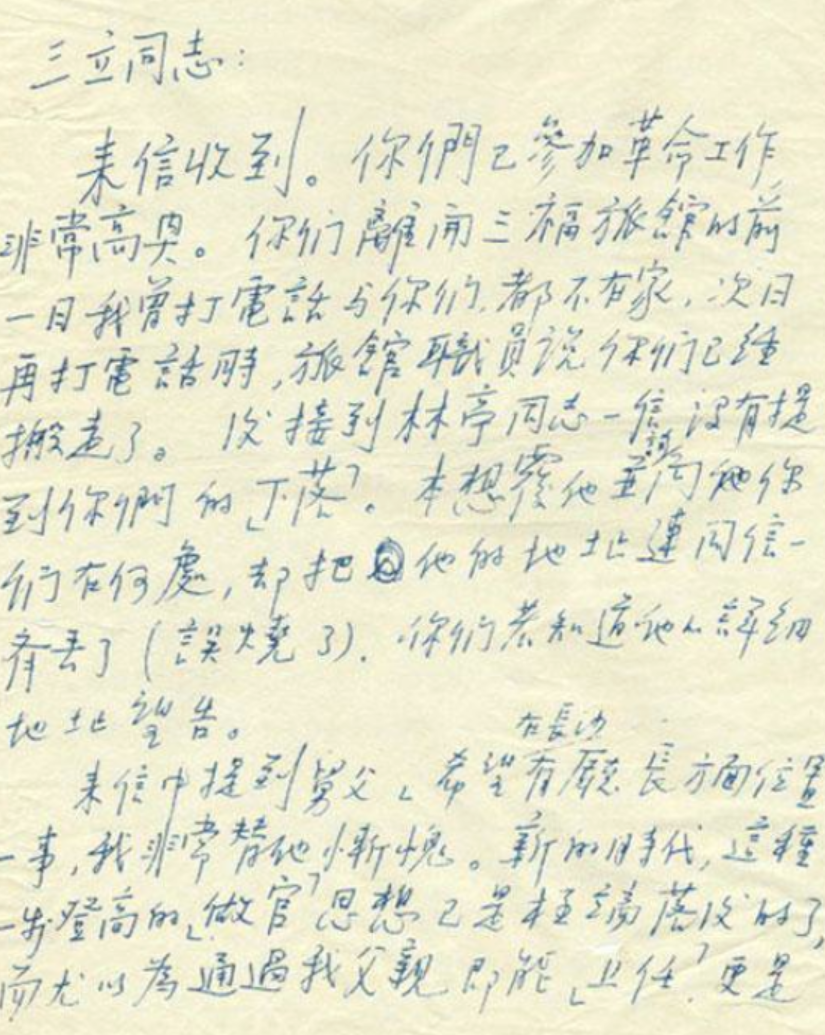 三立同志:
來信收到。你們已參加革命工作,
非常高興。你们離開三福旅館的前
一日我曾打電話与你们,都不在家,次日
再打電話時,旅館職員说你们已經
搬走了。後接到林亭同志一信,没有提
到你們的「下落」。本想覆他並詢问他你
们在何處,却把他的地址連同信一
齊丟了(誤燒了)。你们若知道他的詳細
地址望告。
在長沙
來信中提到舅父「希望有廳長方面位置」
一事,我非常替他慚愧。新的時代,這種
一步登高的「做官」思想已是極端落後的了,
而尤以為通過我父親即能「上任」,更是